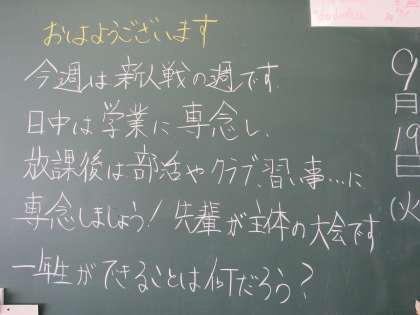 おはようございます
今週は新人戦の週です。
日中は学業に専念し、
放課後は部活やクラブ、習い事…に
専念しましょう！先輩が主体の大会です
一年生ができることは何だろう？
9月19日(火